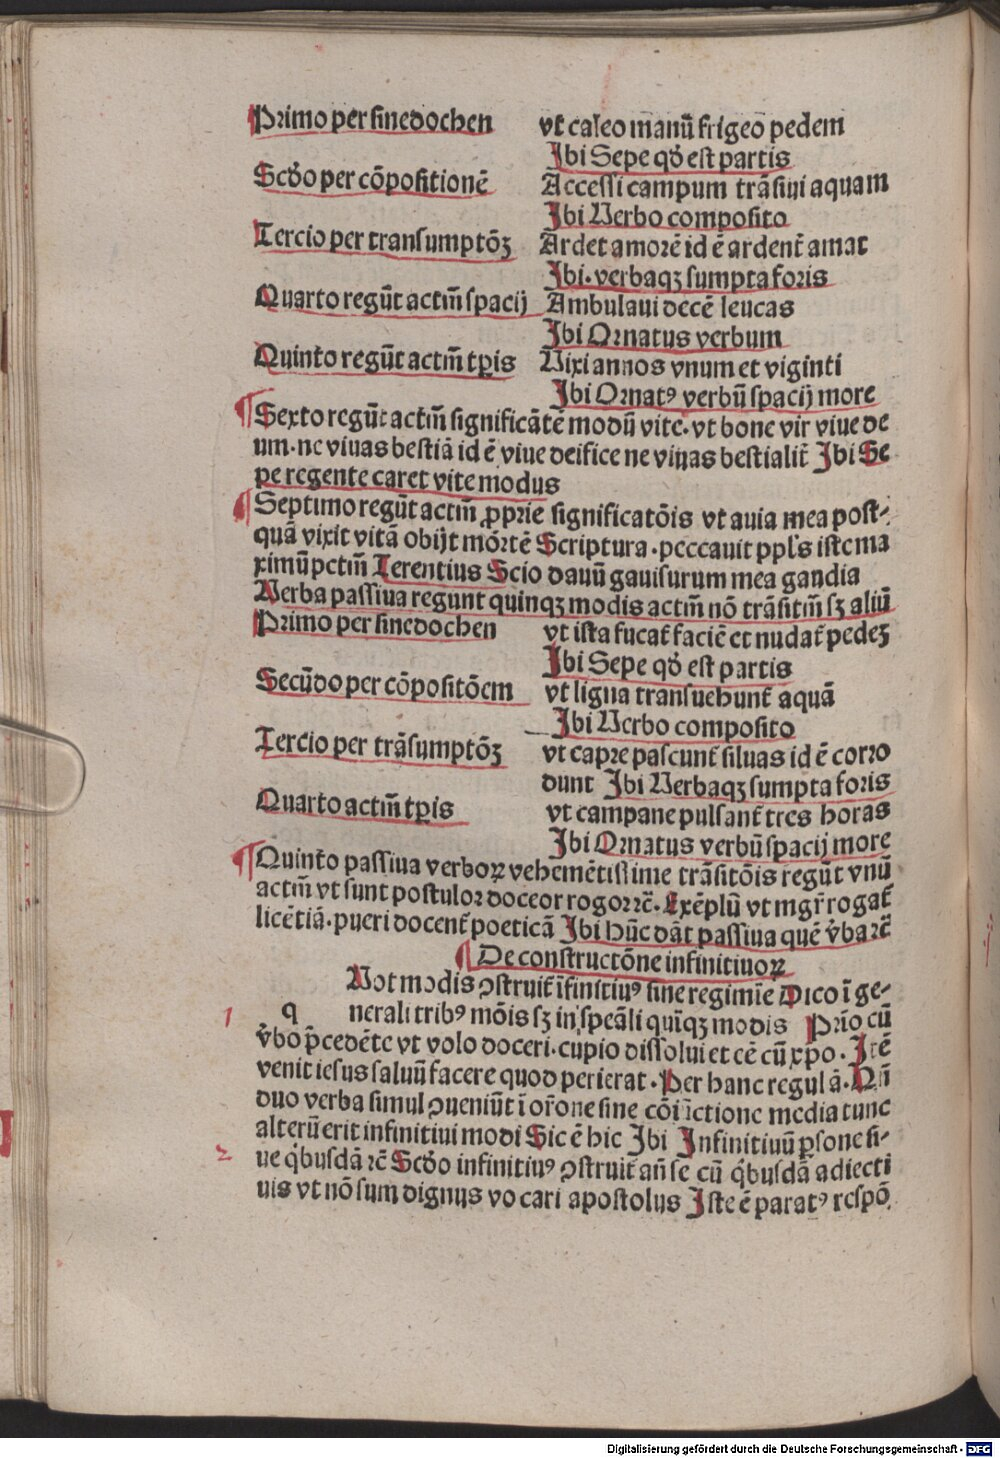 Primo per sinedochen vt caleo manū frigeo pedem
Ibi Sepe qđ est partis
Scđo per cōpositionē Accessi campum trāsiui aquam
Ibi Verbo composito
Tercio per transumptōꝫ Ardet amorē id ē ardent̄ amat
Ibi. verbaqꝫ sumpta foris
Quarto regūt actm̄ spacij Ambulaui decē leucas
Ibi Ornatus verbum
Quinto regūt actm̄ tꝑis Vixi annos vnum et viginti
Ibi Ornatꝰ verbū spacij more
¶ Sexto regūt actm̄ significātē modū vite. vt bone vir viue de
um. ne viuas bestiā id ē viue deifice ne viuas bestialit̄ Ibi Se
pe regente caret vite modus
¶ Septimo regūt actm̄ ꝓprie significatōis vt auia mea post⸗
quā vixit vitā obijt mōrtē Scriptura. peccauit ppl's iste ma
ximū pctm̄ Terentius Scio dauū gauisurum mea gaudia
Verba passiua regunt quinqꝫ modis actm̄ nō trāsitm̄ sꝫ aliū
Primo per sinedochen vt ista fucat̄ faciē et nudat̄ pedeꝫ
Ibi Sepe qđ est partis
Secūdo per cōpositōem vt ligna transuehunt̄ aquā
Ibi Verbo composito
Tercio per trāsumptōꝫ vt capre pascunt̄ siluas id ē corro
dunt Ibi Verbaqꝫ sumpta foris
Quarto actm̄ tꝑis vt campane pulsant̄ tres horas
Ibi Ornatus verbū spacij more
¶ Quinto passiua verboꝝ vehemētissime trāsitōis regūt vnū
actm̄ vt sunt postulor doceor rogor ꝛc̄. Exēplū vt mgr̄ rogat̄
licētiā. pueri docent̄ poeticā Ibi hūc dāt passiua que v̄ba ꝛc̄
¶ De constructōne infinitiuoꝝ
q Vot modis ꝯstruit̄ īfinitiuꝰ sine regimīe Dico ī ge⸗
1 nerali tribꝰ mōis sꝫ in speāli quīqꝫ modis Prīo cū
v̄bo p̄cedēte vt volo doceri. cupio dissolui et cē cū xp̄o. Itē
venit iesus saluū facere quod perierat. Per hanc regulā. Nā
duo verba simul ꝯueniūt ī or̄one sine cōiūctione media tunc
alterū erit infinitiui modi Sic ē hic Ibi Infinitiuū ꝑsone si⸗
2 ue q̇busdā ꝛc̄ Scđo infinitiuꝰ ꝯstruit̄ añ se cū q̇busdā adiecti
uis vt nō sum dignus vocari apostolus Iste ē paratꝰ respō
Digitalisierung gefördert durch die Deutsche Forschungsgemeinschaft - DFG